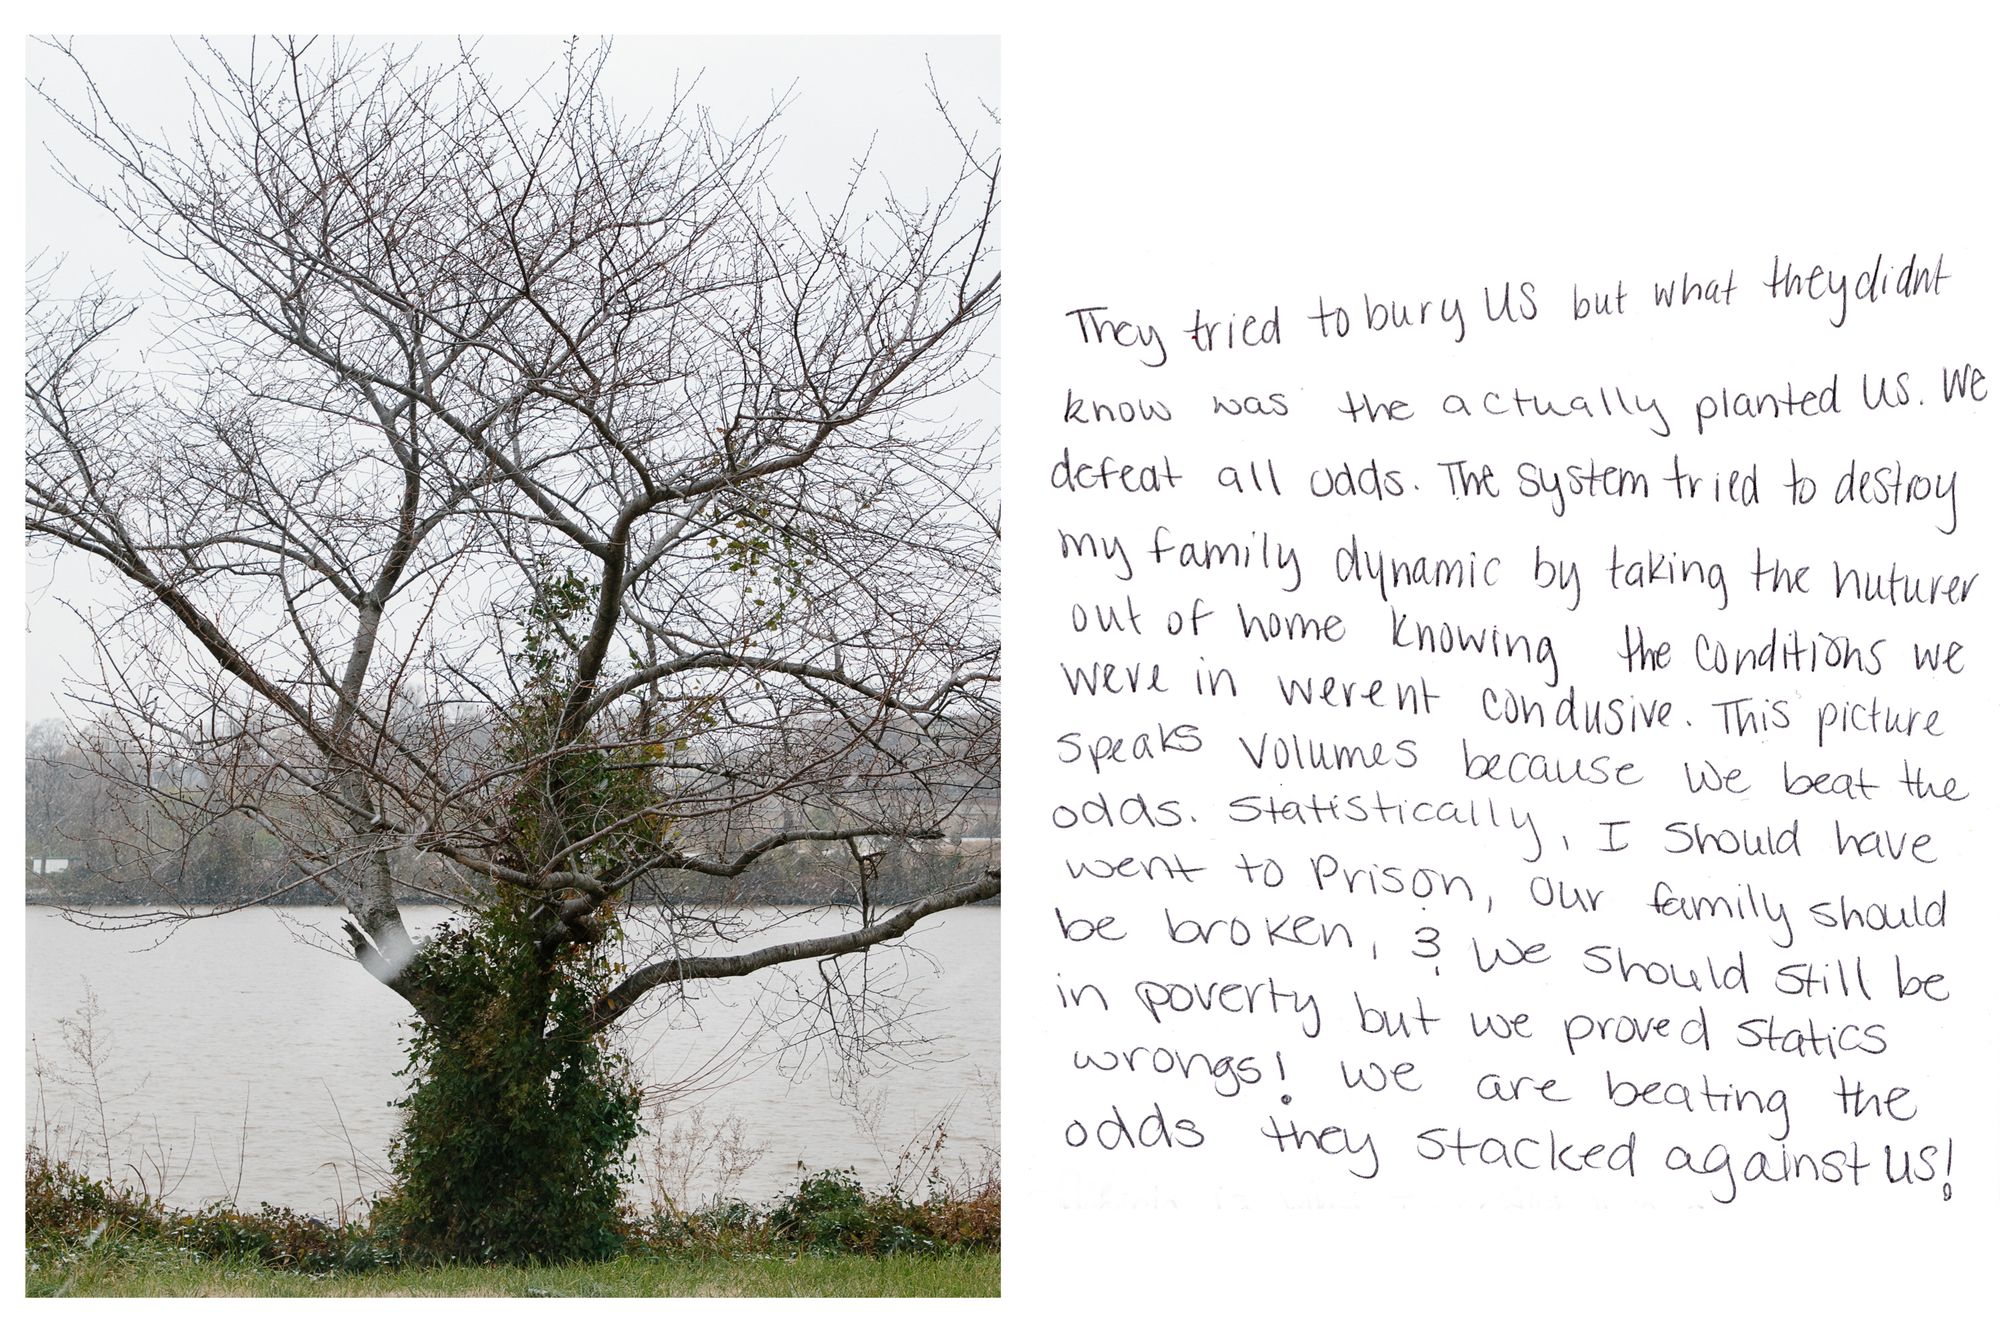 They tried to bury US but what they didnt
know was the actually planted us. We
defeat all odds. The system tried to destroy
my family dynamic by taking the nuturer
out of home knowing the conditions we
were in werent condusive. This picture
speaks volumes because we beat the
odds. Statistically, I should have
went to prison, our family should
be broken, & we should still be
in poverty but we proved statics
wrongs! We are beating the
odds they stacked against us!